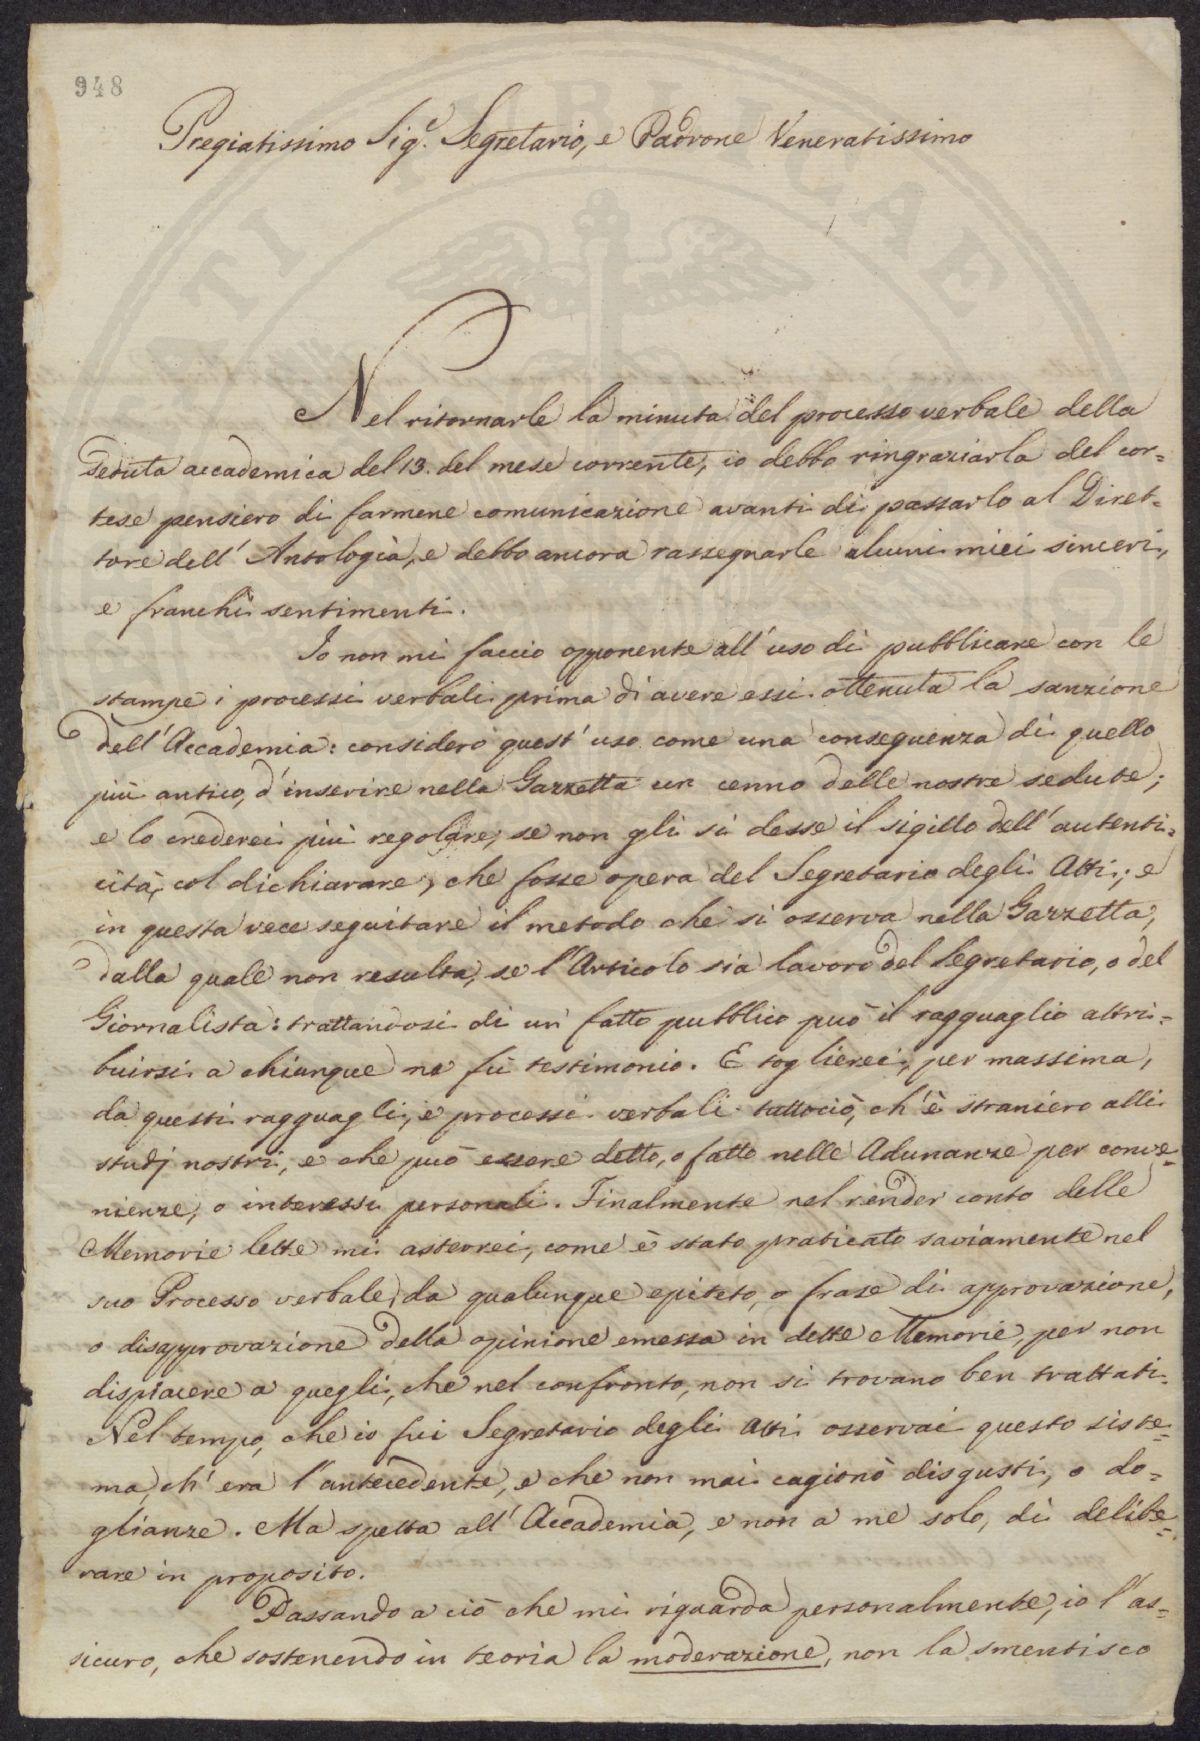 948
Pregiatissimo Sig.e Segretario, e Padrone Veneratissimo
Nel ritornarle la minuta del processo verbale della
seduta accademica del 13. del mese corrente, io debbo ringraziarla del cor=
tese pensiero di farmene comunicazione avanti di passarlo al Diret=
tore dell' Antologia, e debbo ancora rassegnarle alcuni miei sinceri,
e franchi sentimenti.
Io non mi faccio opponente all' uso di pubblicare con le
stampe i processi verbali prima di avere essi ottenuta la sanzione
dell' Accademia: considero quest' uso come una conseguenza di quello
più antico, d'inserire nella Gazzetta un cenno delle nostre sedute;
e lo crederei più regolare, se non gli si desse il sigillo dell' autenti=
cità, col dichiarare, che fosse opera del Segretario degli Atti; e
in questa vece seguitare il metodo che si osserva nella Gazzetta,
dalla quale non resulta, se l'Articolo sia lavoro del Segretario, o del
Giornalista: trattandosi di un fatto pubblico può il ragguaglio attri=
buirsi a chiunque ne fù testimonio. E toglierei, per massima,
da questi ragguagli, e processi verbali tuttociò, ch'è straniero alli
studj nostri, e che può essere detto, o fatto nelle Adunanze per conve=
nienze, o interessi personali. Finalmente nel render conto delle
Memorie lette mi asterrei, come è stato praticato saviamente nel
suo Processo verbale, da qualunque epiteto, o frase di approvazione,
o disapprovazione della opinione emessa in dette Memorie, per non
dispiacere a quegli, che nel confronto, non si trovano ben trattati.
Nel tempo, che io fui Segretario degli Atti osservai questo siste=
ma, ch' era l'antecedente, e che non mai cagionò disgusti, o do=
glianze. Ma spetta all' Accademia, e non a me solo, di delibe=
rare in proposito.
Passando a ciò che mi riguarda personalmente, io l'as=
sicuro, che sostenendo in teoria la moderazione, non la smentisco